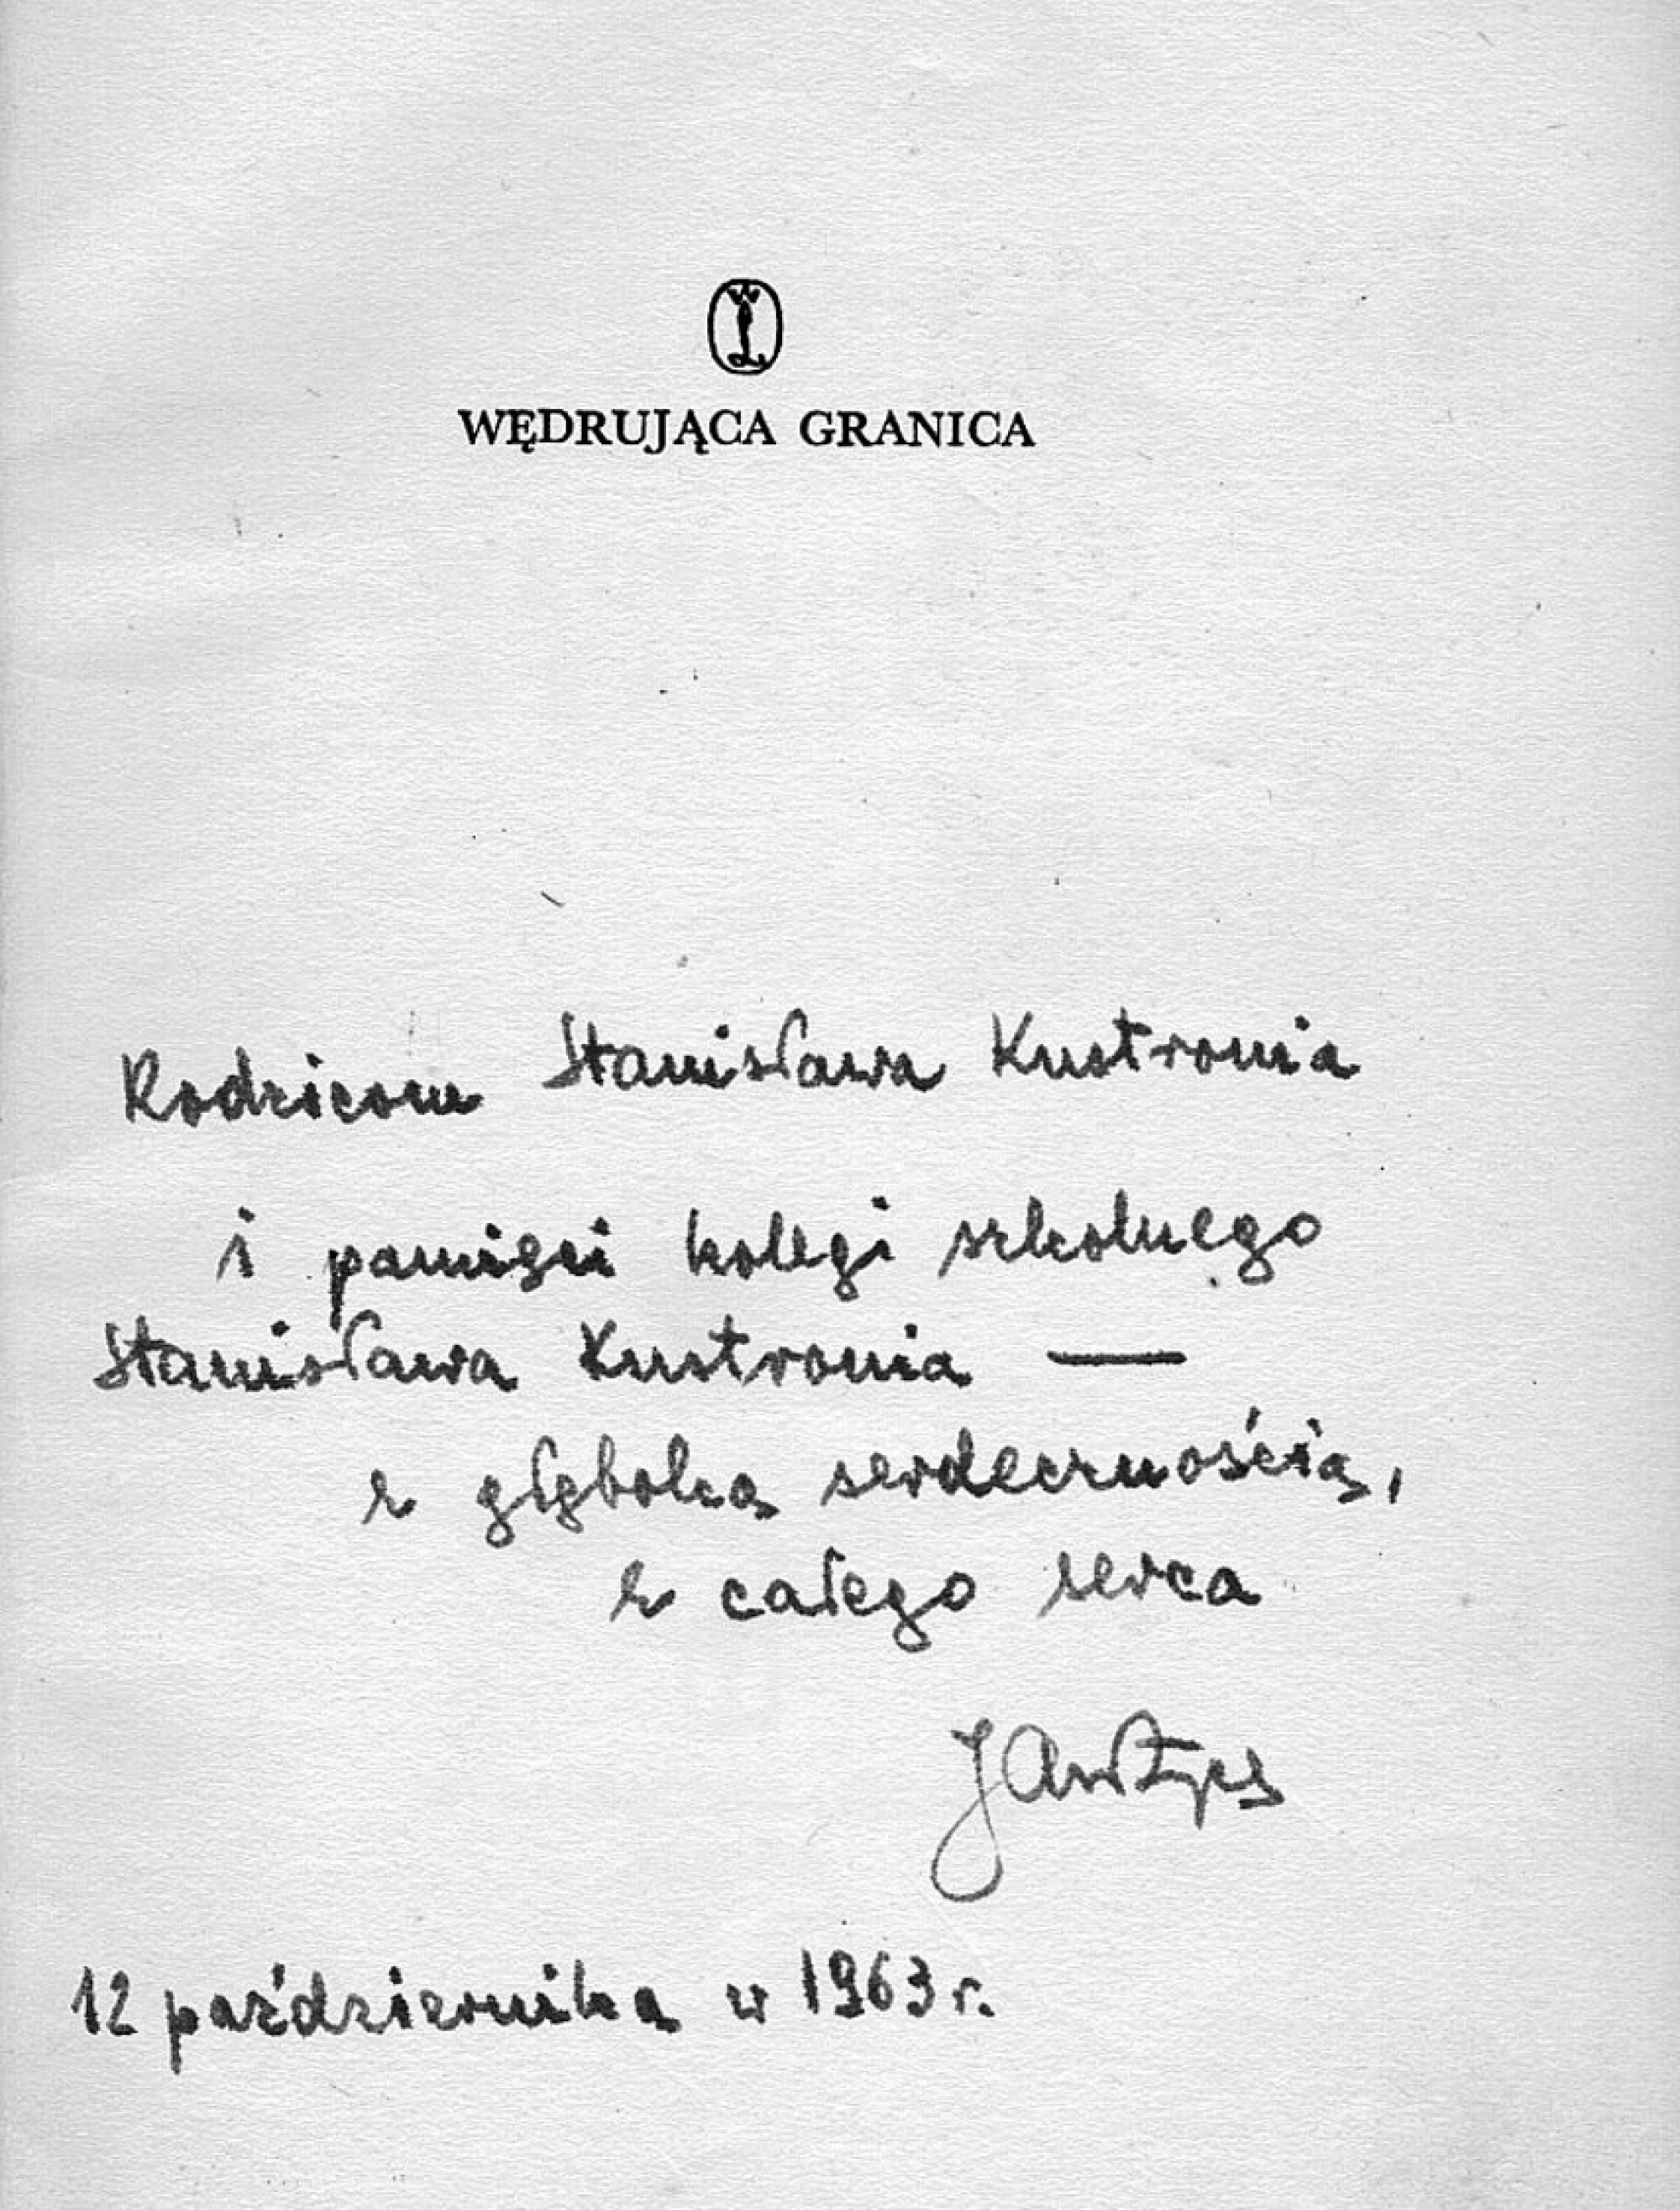 WL
WĘDRUJĄCA GRANICA
Rodzicom Stanisława Kustronia
i pamięci kolegi szkolnego
Stanisława Kustronia —
z głęboką serdecznością,
z całego serca
12 października w 1963 r.